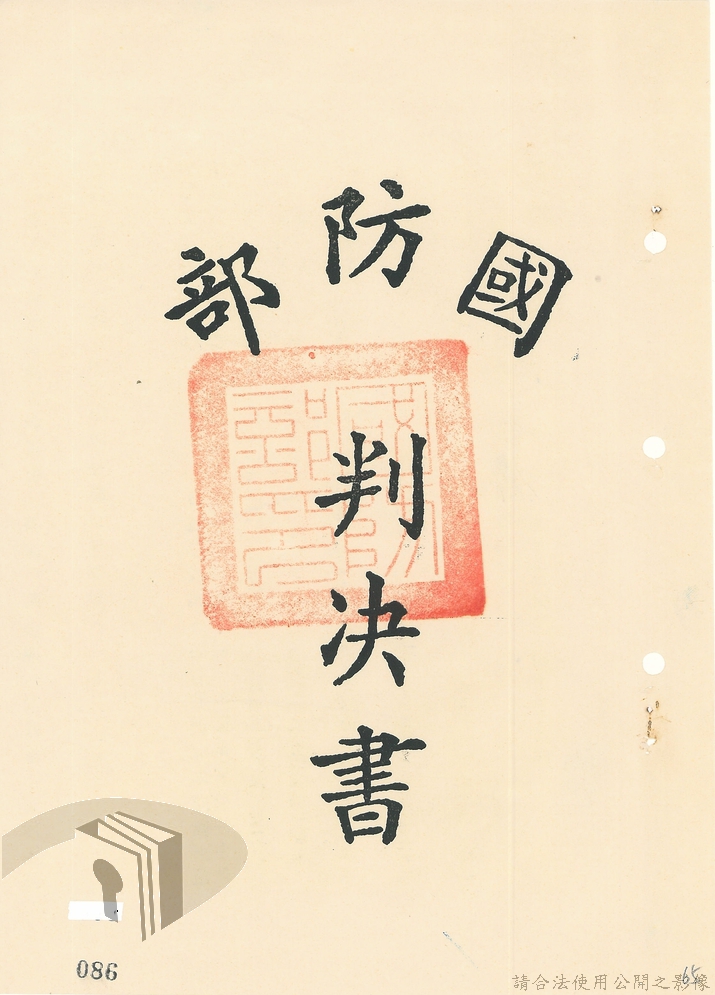 國防部
判決書
086
65
請合法使用公開之影像